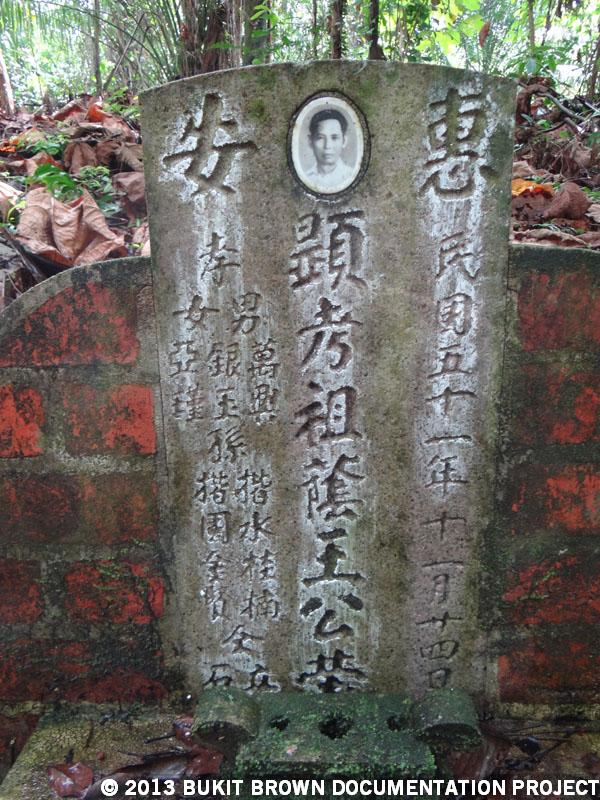 惠
安
民国五十一年十一月廿四日
顯考祖蔭王公塋
孝
男萬興
銀玉
女亞瑾
孫
楷水桂楠
楷国金賢
仝立
石
© 2013 BUKIT BROWN DOCUMENTATION PROJECT